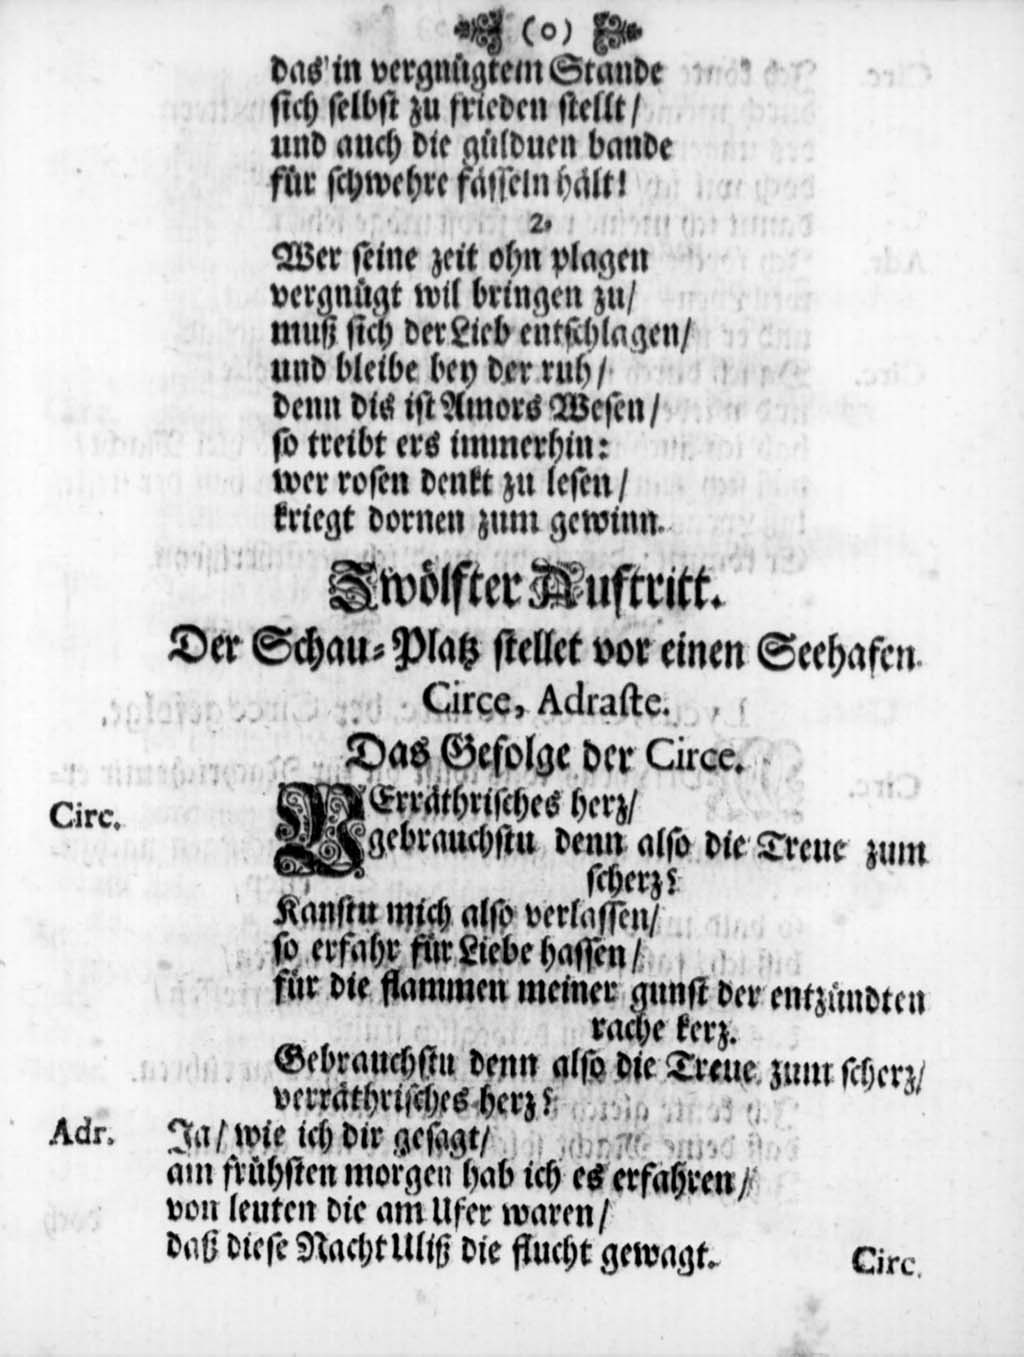 (0)
das in vergnügtem Stande
sich selbst zu frieden stellt/
und auch die gülduen bande
für schwehre fässeln hält!
2.
Wer seine zeit ohn plagen
vergnügt wil bringen zu/
muß sich der Lieb entschlagen/
und bleibe bey der ruh/
denn dis ist Amors Wesen/
so treibt ers immerhin:
wer rosen denkt zu lesen/
kriegt dornen zum gewinn.
Zwölfter Auftritt.
Der Schau-Platz stellet vor einen Seehafen.
Circe, Adraste.
Das Gefolge der Circe.
Circ. VErräthrisches herz/
gebrauchstu denn also die Treue zum
scherz?
Kanstu mich also verlassen/
so erfahr für Liebe hassen/
für die flammen meiner gunst der entzündten
rache kerz.
Gebrauchstu denn also die Treue zum scherz/
verräthrisches herz?
Adr. Ja/ wie ich dir gesagt/
am frühsten morgen hab ich es erfahren/
von leuten die am Ufer waren/
daß diese Nacht Uliß die flucht gewagt.
Circ.